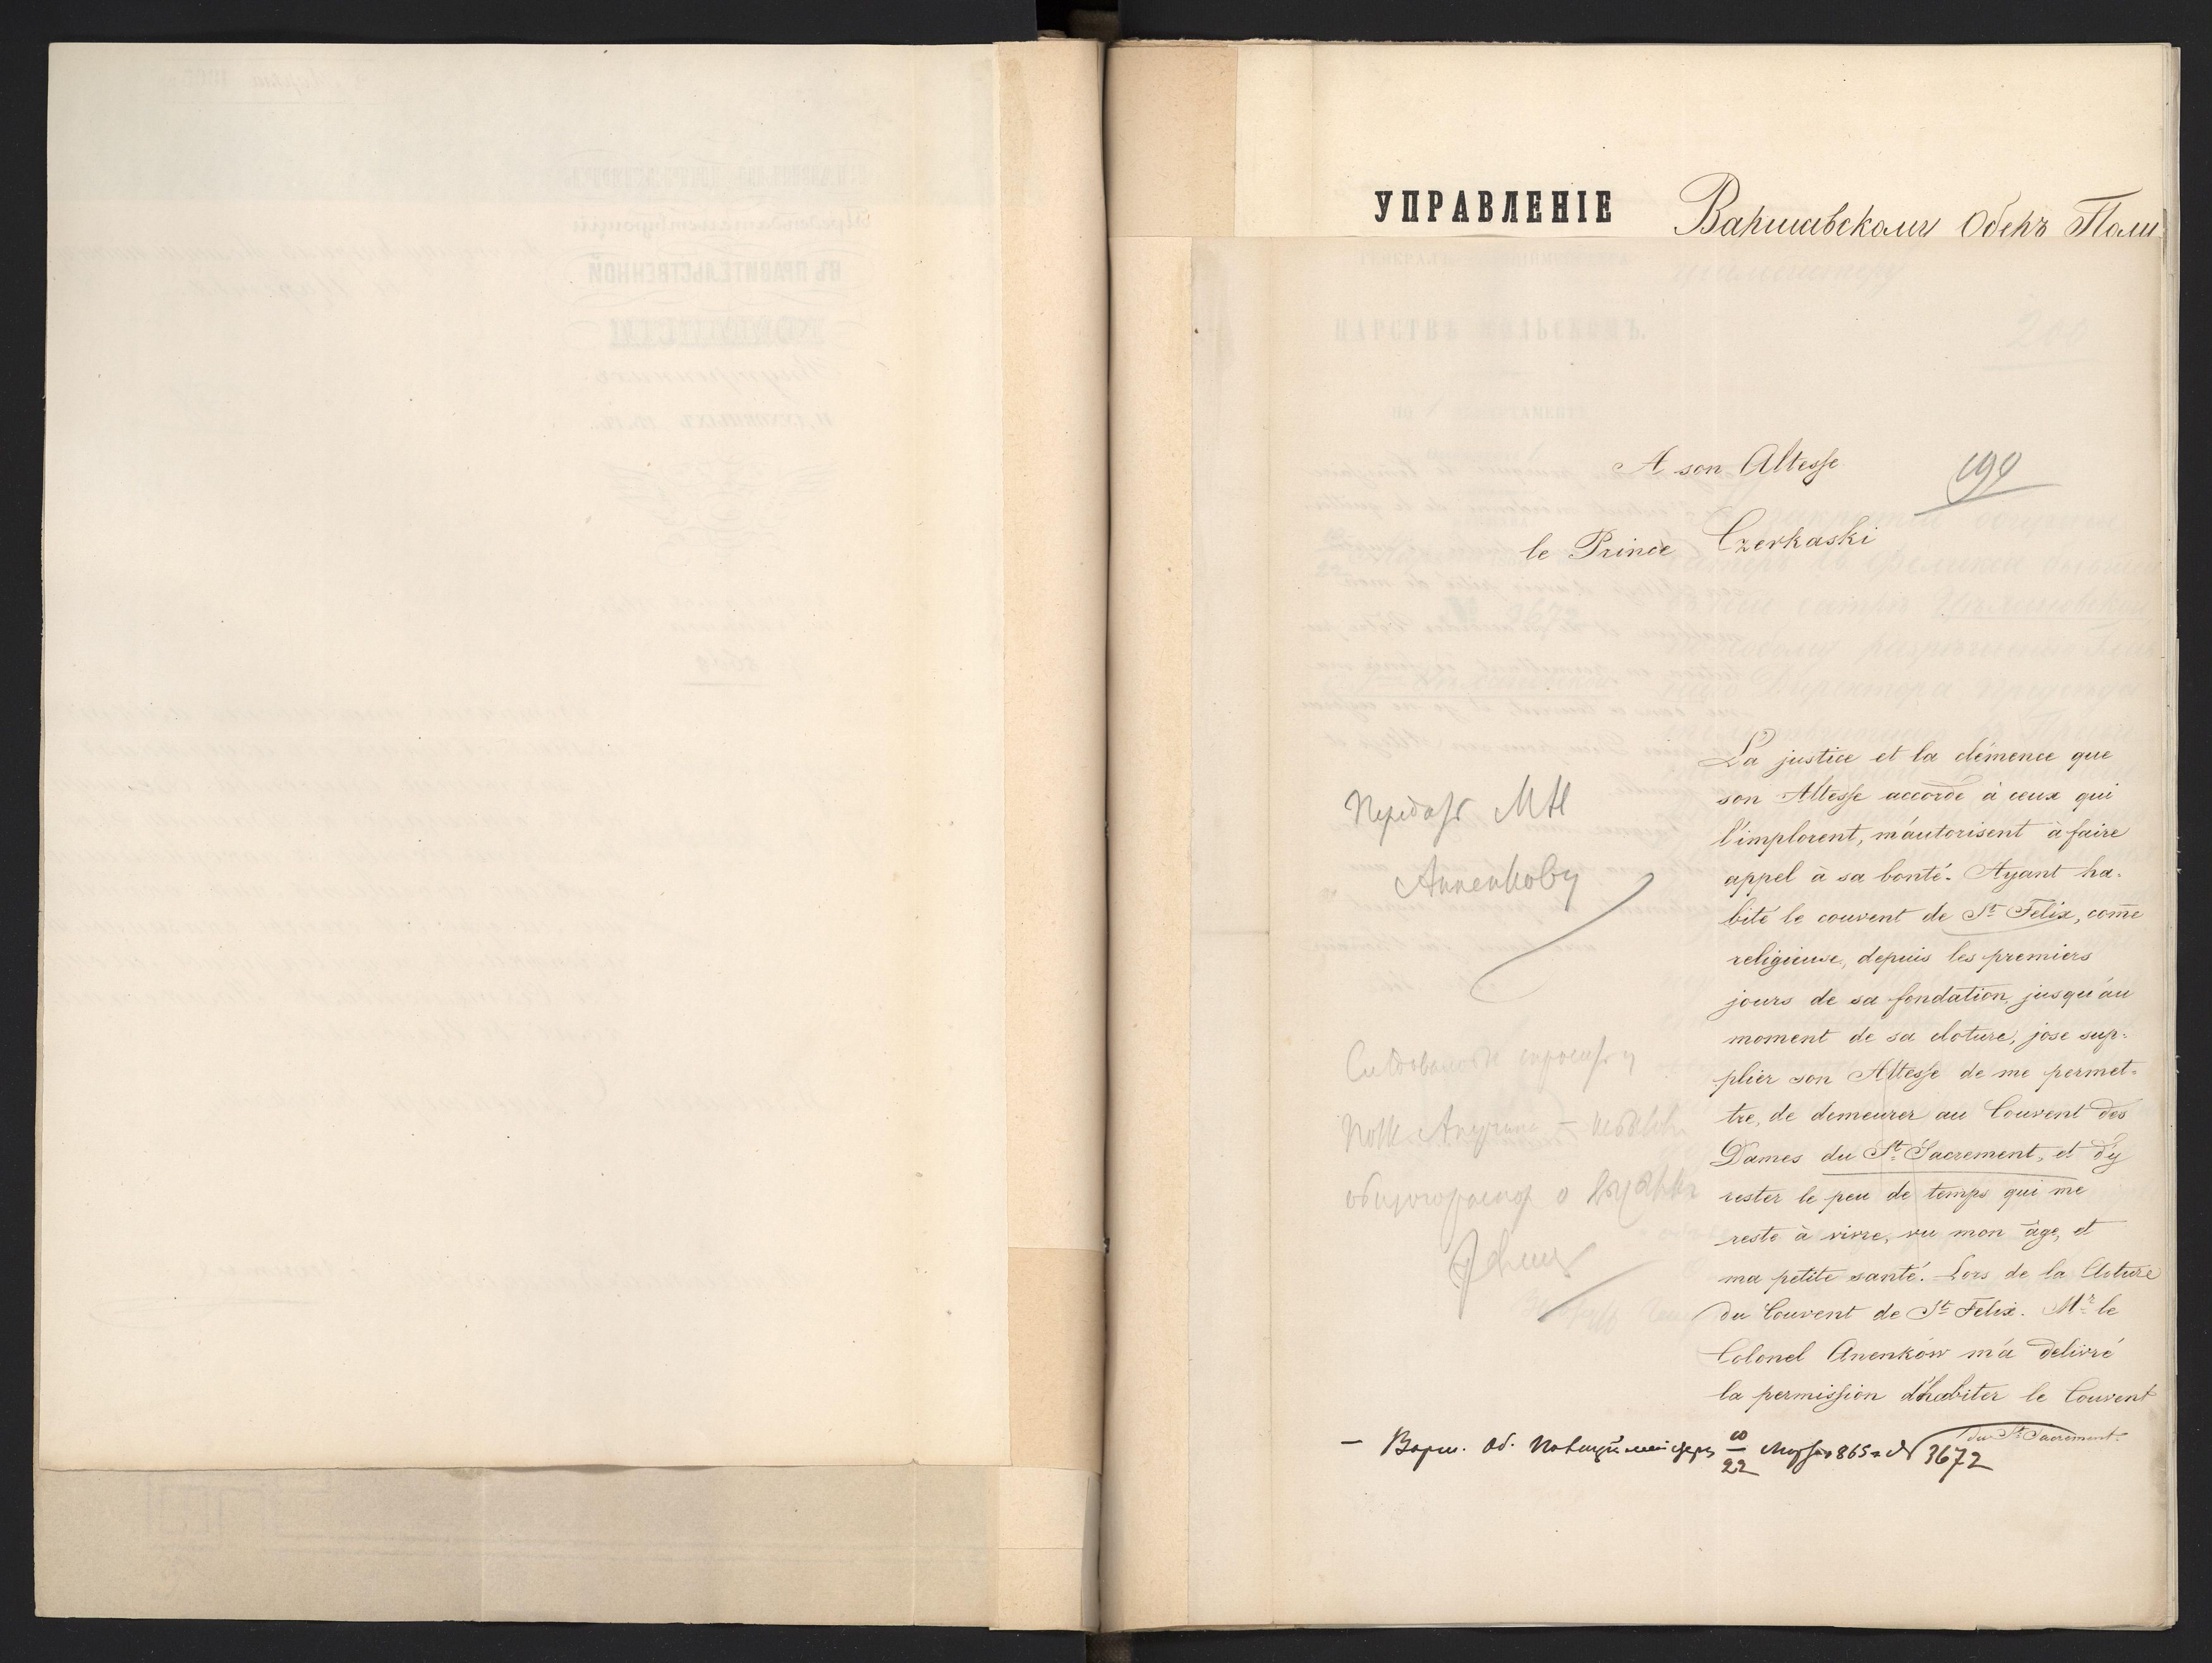 УПРАВЛЕНІЕ Варшавскому Оберъ Поли
199
A son Altesse
le Prince Czerkaski
La justice et la clémence que
son Altesse accorde à ceux qui
l'implorent, m'autorisent à faire
appel à sa bonté. Ayant ha-
bité le couvent de St Felix, come
religieuse, depuis les premiers
jours de sa fondation, jusqu'au
moment de sa cloture, jose sup-
plier son Altesse de me permet-
tre, de demeurer au Couvent des
Dames du St Sacrement, et d'y
rester le peu de temps qui me
reste à vivre, vu mon âge, et
ma petite santé. Lors de la Cloture
du Couvent de St Felix. Mr le
Colonel Anenków m'a delivré
la permission d'habiter le Couvent
du St Sacrement.
Передать МН
Анненкову
— Варш. Об. Полицiймейстеру 10/22 Марта 865 г. № 3672